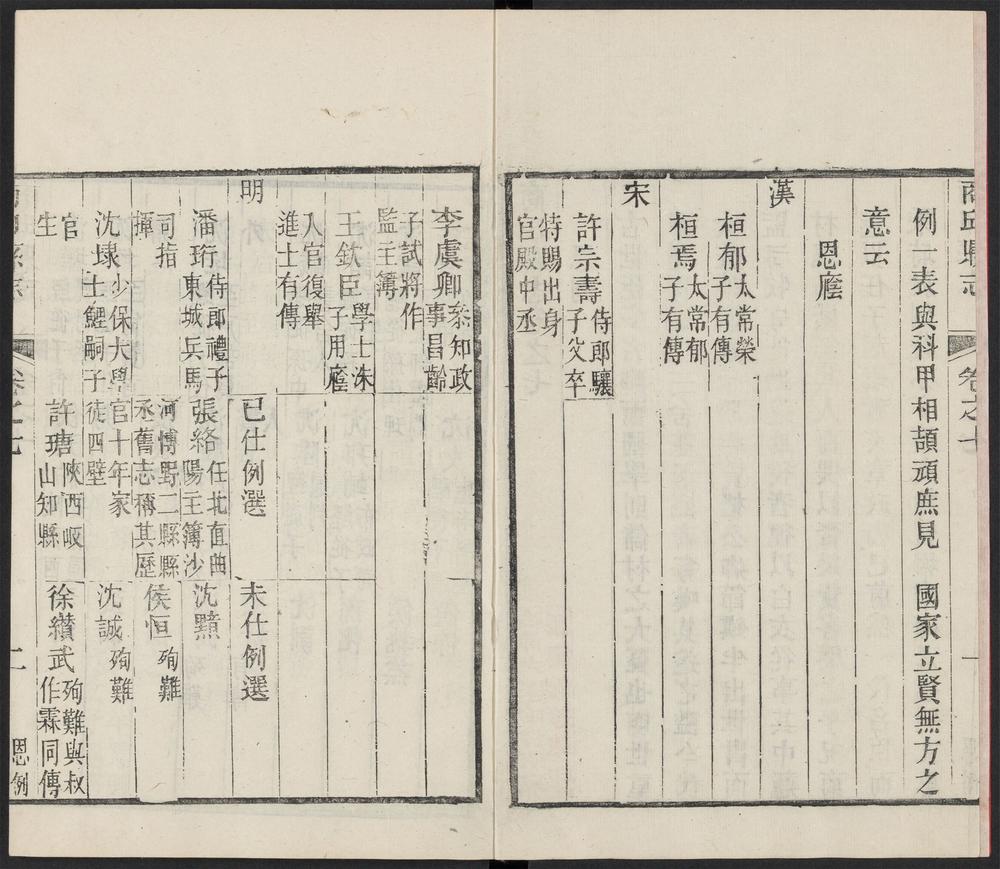 商邱縣志 卷之七 一
例一表與科甲相頡頏庶見 國家立賢無方之
意云
恩廕
漢
桓郁太常榮
子有傳
桓焉太常郁
子有傳
宋
許宗壽侍郎驤
子父卒
特賜出身
官殿中丞
李虞卿叅知政
事昌齡
子試將作
監主簿
王欽臣學士洙
子用廕
入官復舉
進士有傳
明 已仕例選 未仕例選
潘珩侍郎禮子
東城兵馬
司指
揮
張絡任北直曲
陽主簿沙
河博野二縣縣
丞舊志稱其歷
官十年家
徒四壁
沈黥
侯恒殉難
沈埭少保大學
士鯉嗣子
官
生
許瑭陝西岐
山知縣
沈誠殉難
徐纘武殉難與叔
作霖同傳
卷之七 二 恩例